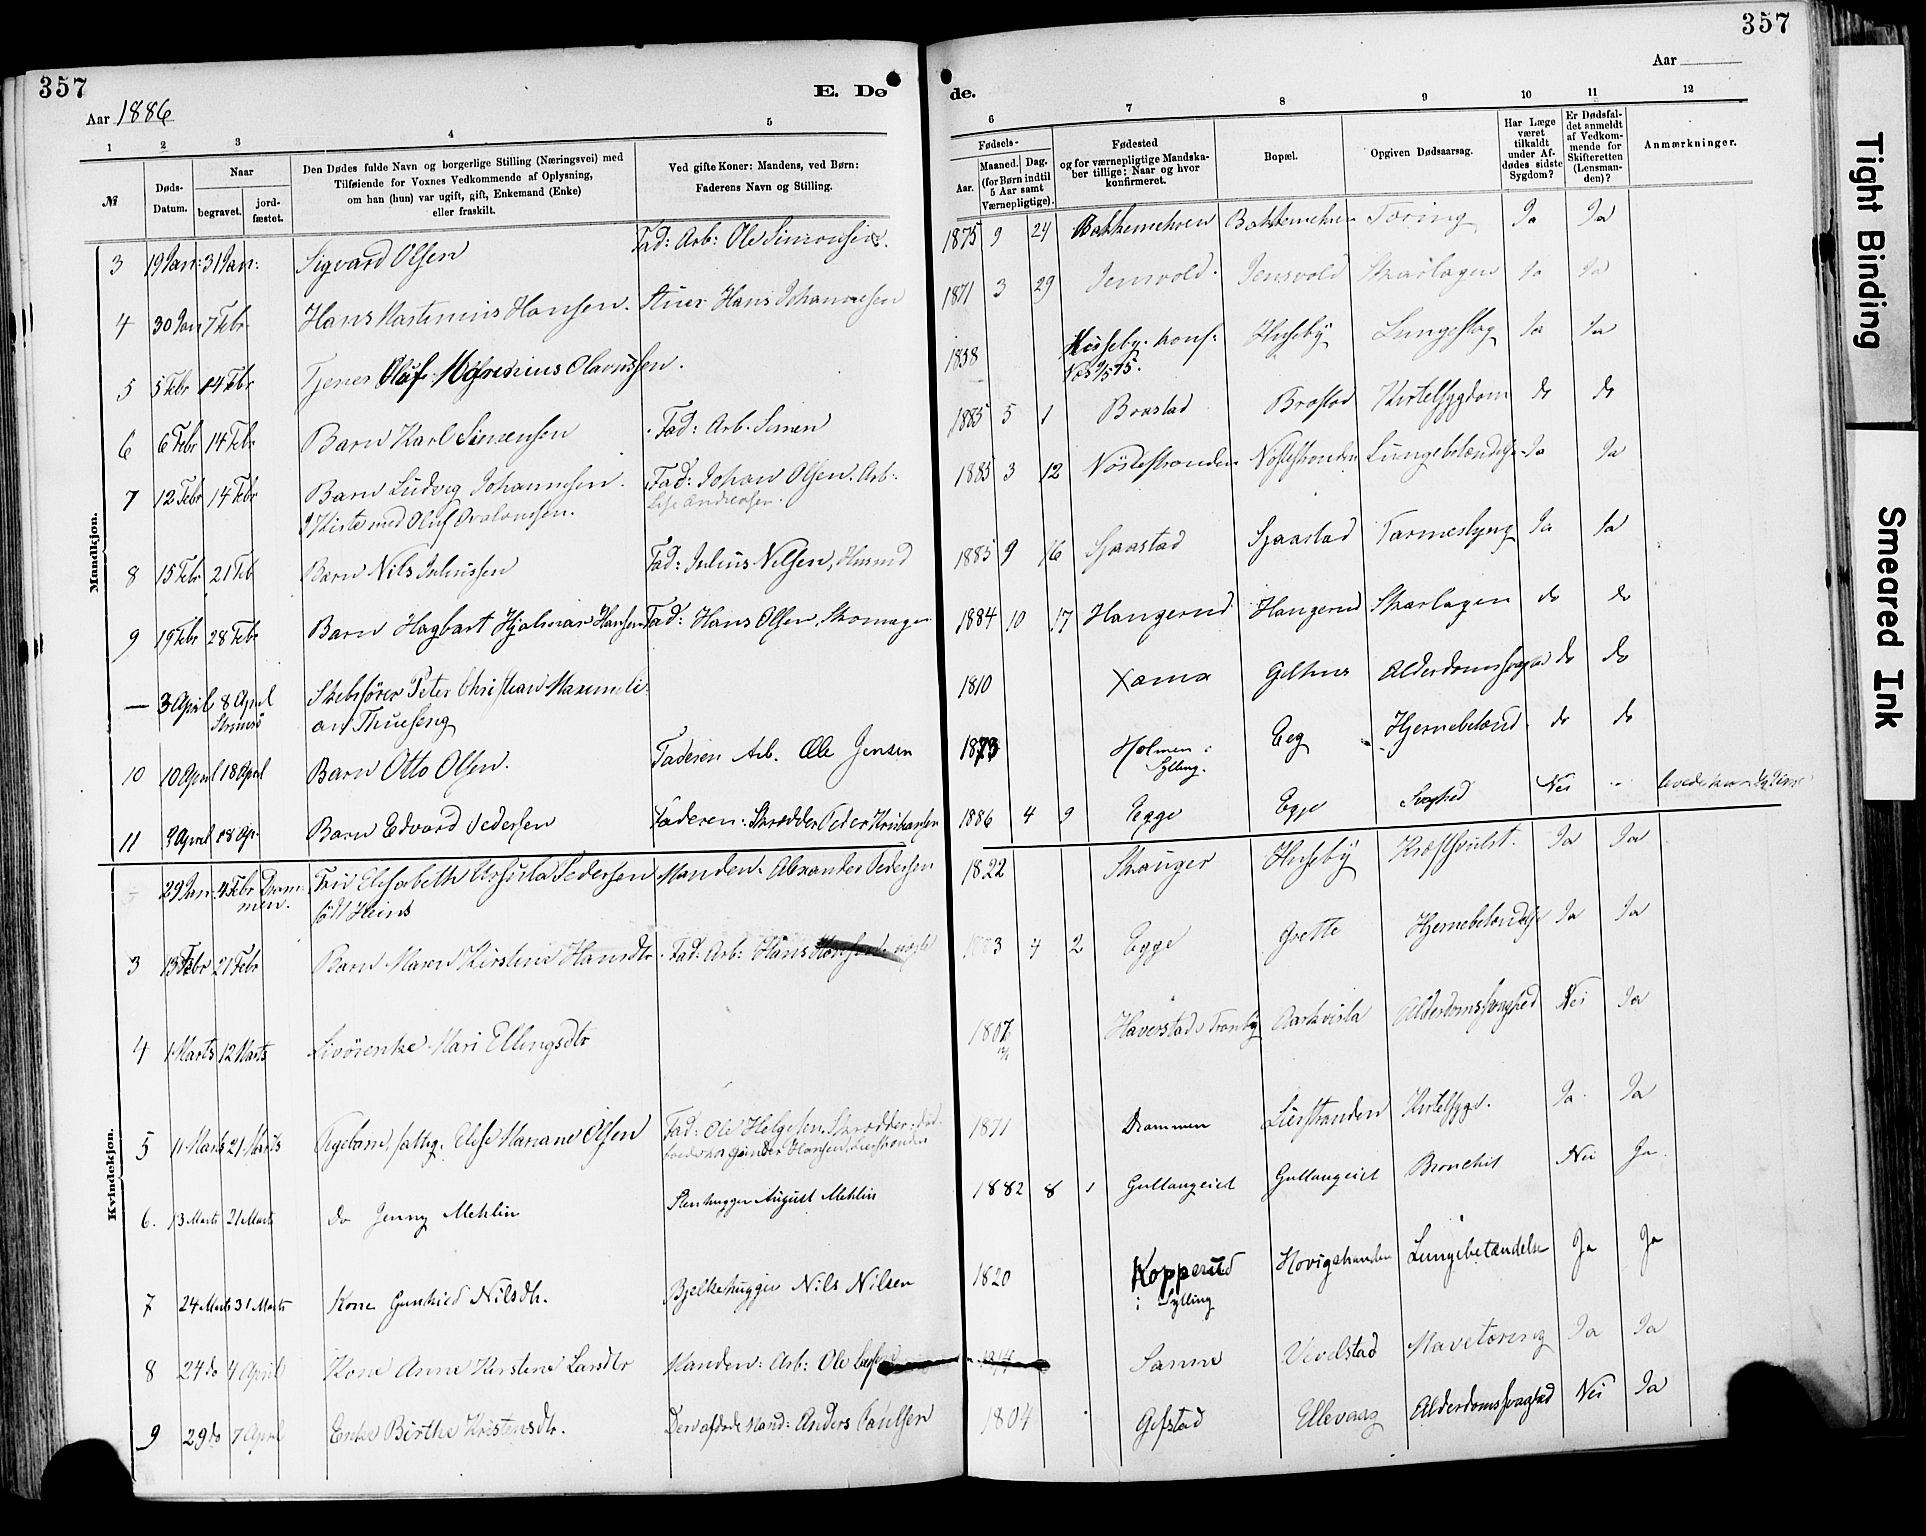 357
357
Aar 1886
E. Dø
de.
Aar
1 2 3 4 5
6 7 8 9 10 11 12
№
Døds-Datum.
Naar
begravet.
jord-fæstet.
Den Dødes fulde Navn og borgerlige Stilling (Næringsvei) med
Tilføiende for Voxnes Vedkommende af Oplysning,
om han (hun) var ugift, gift, Enkemand (Enke)
eller fraskilt.
Ved gifte Koner: Mandens, ved Børn:
Faderens Navn og Stilling.
Fødsels-
Aar.
Maaned. Dag.
(for Børn indtil
5 Aar samt
Værnepligtige).
Fødested
og for værnepligtige Mandska-
ber tillige: Naar og hvor
konfirmeret.
Bopæl.
Opgiven Dødsaarsag.
Har Læge
været
tilkaldt
under Af-
dødes sidste
Sygdom?
Er Dødsfal-
det anmeldt
af Vedkom-
mende for
Skifteretten
(Lensman-
den)?
Anmærkninger.
Mandkjøn.
3 19 Jan: 31 Jan: Sigvard Olsen Fad: Arb: Ole Simonsen. 1875 9 24 Bakkemehren Bakkemehren Tæring Ja Ja
4 30 Jan 7 Febr Hans Martinius Hansen. Stuer Hans Johannesen 1871 3 29 Jensvold. Jensvold Skarlagen Ja Ja
5 5 Febr 14 Febr Tjener Oluf Olavussen. 1858 Huseby. konf: Huseby Lungeslag Ja Ja
6 6 Febr 14 Febr Barn Karl Simensen Fad: Arb. Simen 1885 5 1 Brastad Brastad Kirtelsygdom do do
7 12 Febr 14 Febr Barn Ludvig Johannesen. Fad: Johan Olsen. Arb: 1885 3 12 Nøstestranden Nøstestranden Lungebetændelse Ja Ja
8 15 Febr 21 Feb Barn Nils Juliussen Fad: Julius Nilsen, Husmd 1885 9 16 Sjaastad Sjaastad Tarmeslyng Ja Ja
9 19 Febr 28 Febr Barn Hagbart Hjalmar Hansen Fad: Hans Olsen, Skomager 1884 10 17 Hangerud Hangerud Skarlagen do do
— 3 April 8 April Skibsfører Peter Christian Maximili- 1810 Gilhus Alderdomssvaghed do do
Strømsø
an Thueseng
10 10 April 18 April Barn Otto Olsen. Faderen Arb. Ole Jensen 1873 Holmen i Eeg Hjernebetænd. do do
Sylling.
11 9 April 18 Ap. Barn Edvard Pedersen Faderen: Skrædder Peder Kristiansen 1886 4 9 Egge Egge Svaghed Nei "
Kvindekjøn.
29 Jan: 4 Febr Dram-
men.
Fru Elisabeth Ursula Pedersen Manden. Alexander Pedersen 1822 Skauger Huseby Kræftsvulst. Ja Ja
født Heins
3 13 Febr 21 Febr Barn Maren Kirstine Hansdtr. Fad: Arb: Hans 1883 4 2 Egge Grette Hjernebetændelse Ja Ja
4 1 Marts 12 Marts Livørenke Mari Ellingsdtr 1807 Haverstad i Tranby Aarkvisla Alderdomssvaghed Nei Ja
5 11 Marts 21 Marts Pigebarn, fattig. Elise Mariane Olsen Fad: Ole Helgesen. Skrædder. 1871 Drammen Lierstranden Kirtelsyge. Ja. Ja
6. 13 Marts 21 Marts do Jenny Mehlin Stenhugger August Mehlin 1882 8 1 Gullaugeiet Gullaugeiet Bronchit Nei Ja.
7 24 Marts 31 Marts Kone Gunhild Nilsdtr. Bjelkehugger Nils Nilsen 1820 Kopperud Hovigstranden Lungebetændelse Ja Ja
i Sylling
8 24 do 4 April Kone Anne Kirstine Larsdtr Manden: Arb: Ole Sanne Vivelstad Mavetæring Ja Ja
9 29 do 7 April Enke Birthe Kristensdtr. Den afdøde Mand: Anders Paulsen 1804 Gifstad Ellevaag Alderdomssvaghed Nei Ja
Tight Binding
Smeared Ink